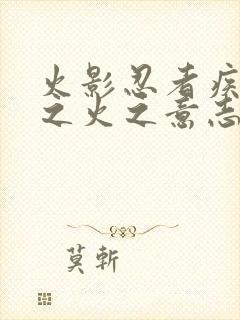 火影忍者疾
之火之意志
莫斬